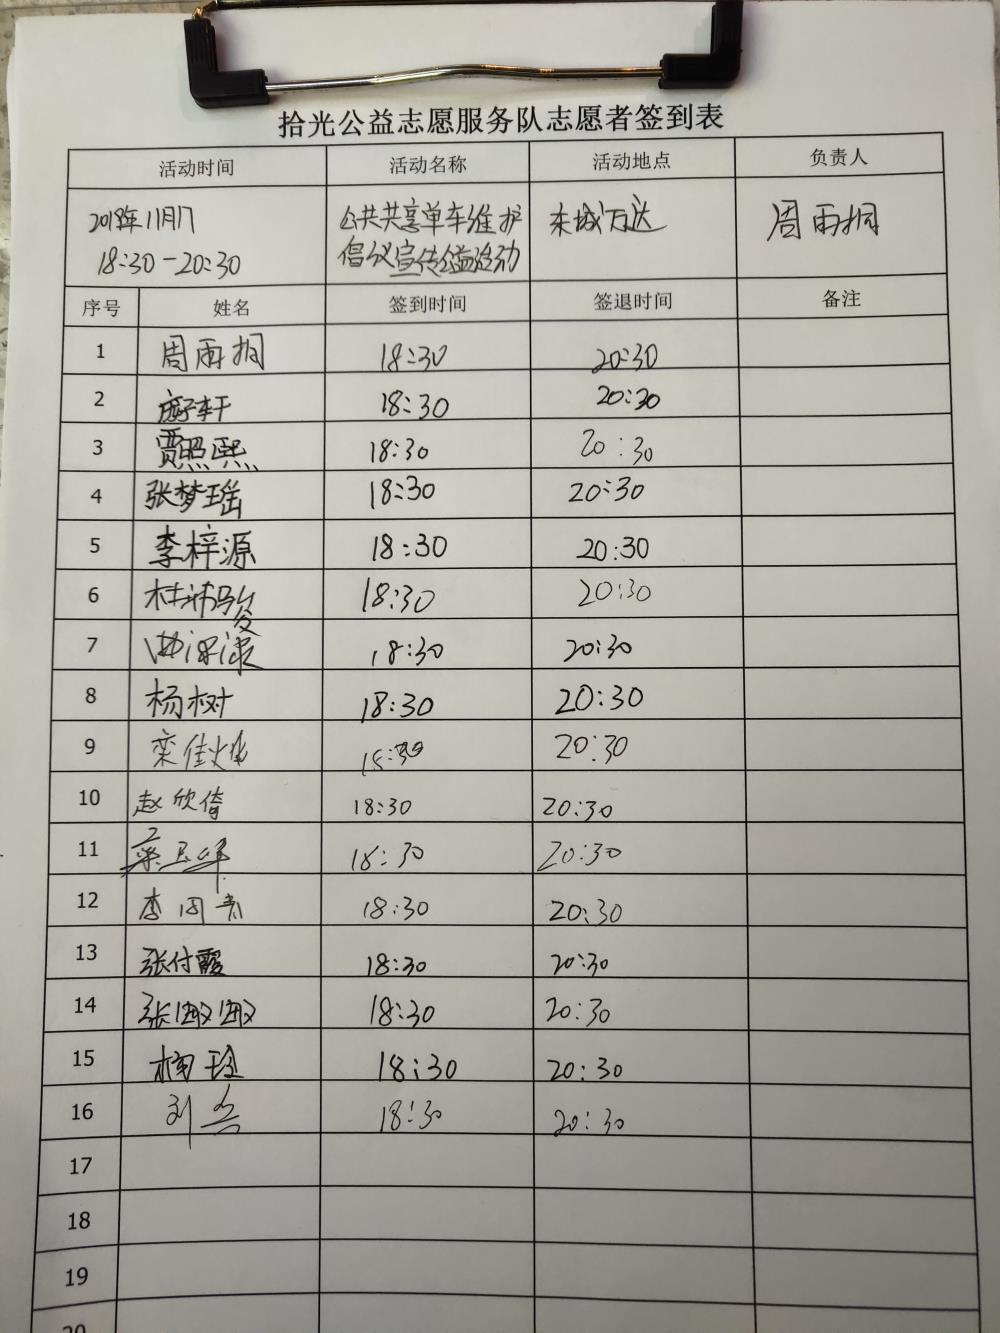 拾光公益志愿服务队志愿者签到表
活动时间 活动名称 活动地点 负责人
2018年11月17 公共共享单车维护 东城万达 周雨桐
18:30-20:30 倡议宣传公益活动
序号 姓名 签到时间 签退时间 备注
1 周雨桐 18:30 20:30
2 18:30 20:30
3 贾照熙 18:30 20:30
4 张梦瑶 18:30 20:30
5 李梓源 18:30 20:30
6 杜沛骏 18:30 20:30
7 18:30 20:30
8 杨树 18:30 20:30
9 栾佳 20:30
10 赵欣倚 18:30 20:30
11 18:30 20:30
12 李 18:30 20:30
13 张付霞 18:30 20:30
14 张淑淑 18:30 20:30
15 18:30 20:30
16 刘 18:30 20:30
17
18
19
20